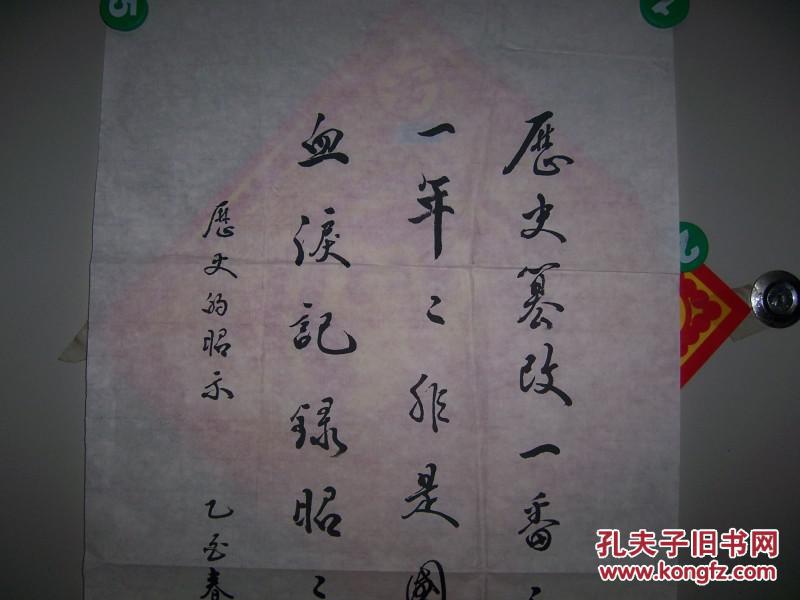 歷史篡改一番〻
一年〻非是國
血淚記録昭〻
歷史的昭示 乙酉春
5
孔夫子旧书网
www.kongfz.com